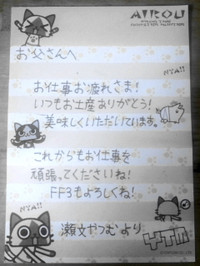 AIROU
お父さんへ
お仕事お疲れさま!
いつもお土産ありがとう!
美味しくいただいています。
これからもお仕事を
頑張ってくださいね!
FF3もよろしくね!
より